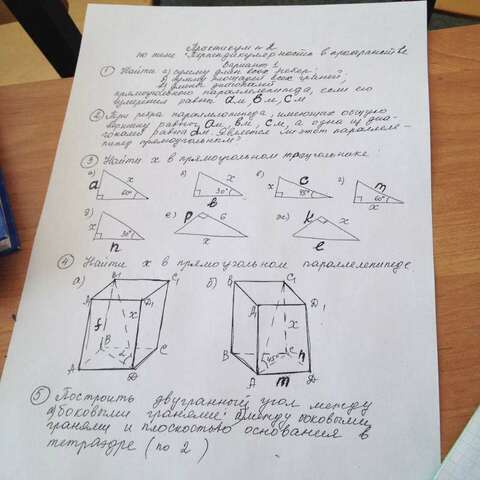 Практикум №2
по теме "Перпендикулярность в пространстве"
Вариант 1
① Найти а) сумму длин всех рёбер;
б) сумму площадей всех граней;
в) длины диагоналей
прямоугольного параллелепипеда, если его
измерения равны ам, вм, см
② Три ребра параллелепипеда, имеющих общую
вершину равны ам, вм, см, а одна из диа-
гоналей равна dм. Является ли этот параллеле-
пипед прямоугольным?
③ Найти х в прямоугольном треугольнике
а) б) в) г)
a x 60° x 30° в c x m 60° x
д) е) ж)
x 30° n p 6 x k l
④ Найти х в прямоугольном параллелепипеде
а) б)
B₁ C₁ A₁ D₁ f x B C A D
B₁ C₁ A₁ D₁ x B C 45° n A m D
⑤ Построить двугранный угол между
боковыми гранями и между боковыми
гранями и плоскостью основания в
тетраэдре (по 2)